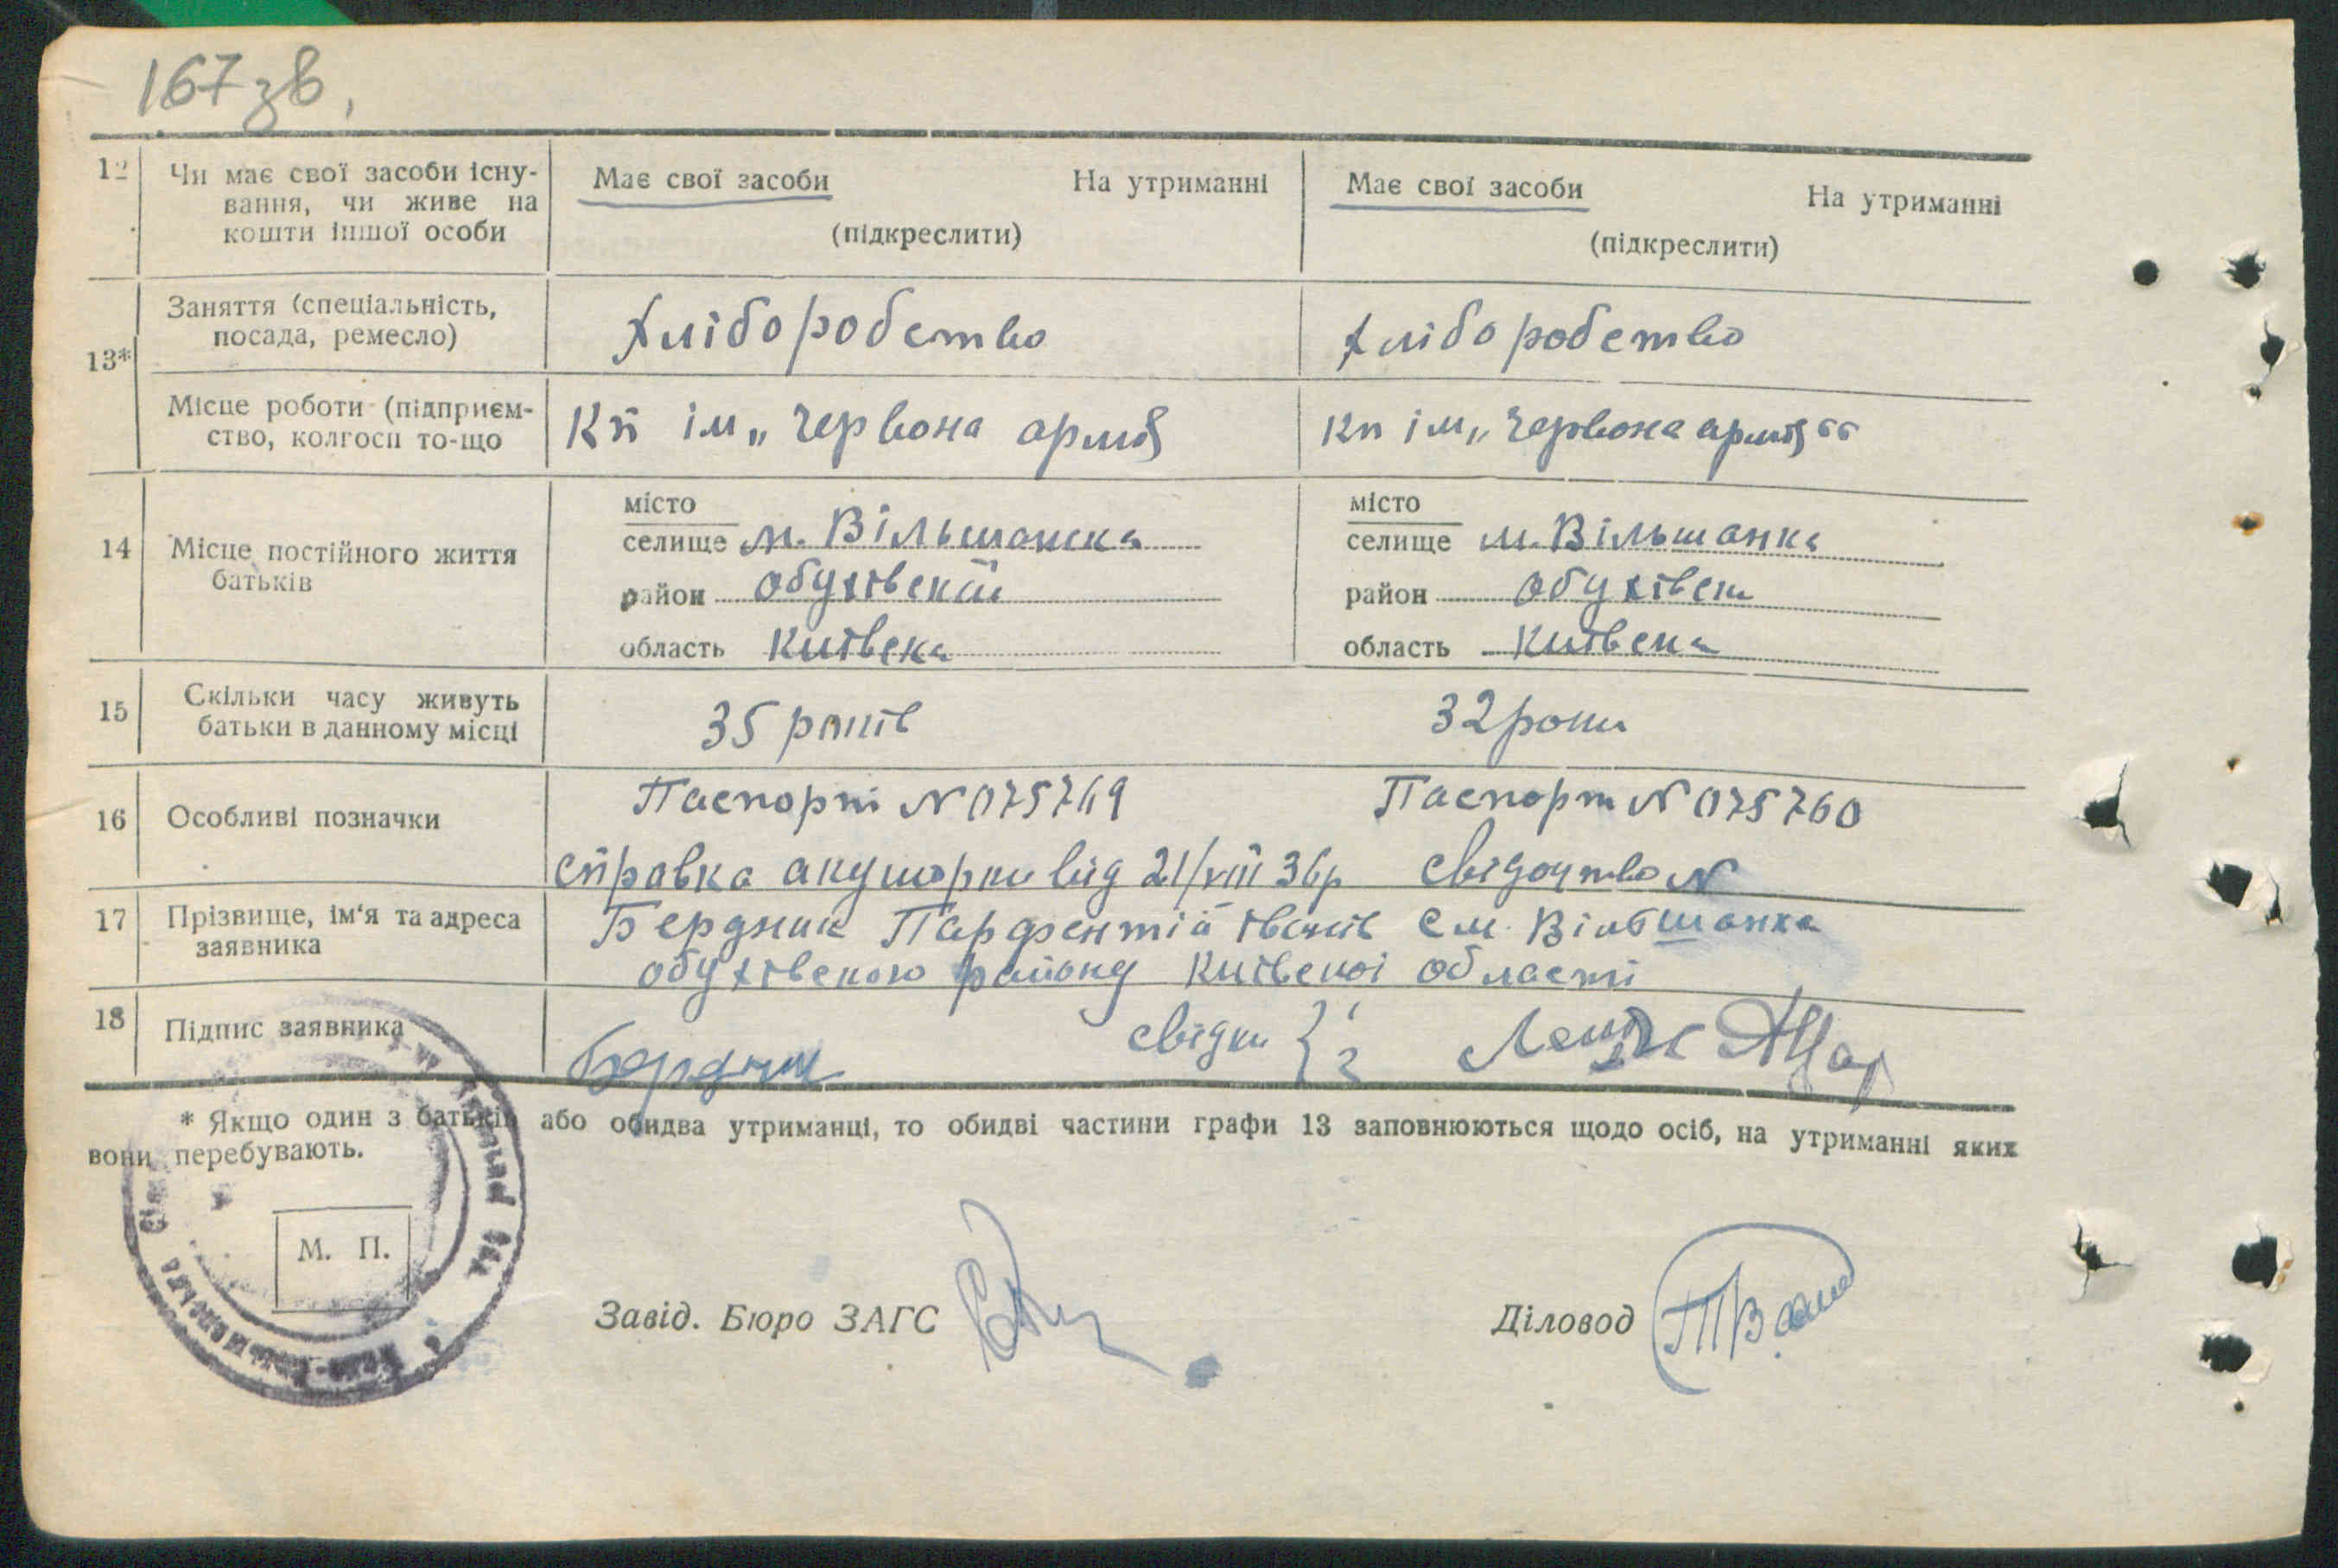 167 зв,
12 Чи має свої засоби існу-
вання, чи живе на
кошти іншої особи
Має свої засоби На утриманні
(підкреслити)
Має свої засоби На утриманні
(підкреслити)
13*
Заняття (спеціальність,
посада, ремесло)
Хліборобство
Хліборобство
Місце роботи (підприєм-
ство, колгосп то-що
Кп ім „Червона армія
Кп ім „Червона армія“
14 Місце постійного життя
батьків
місто
селище м. Вільшанка
район Обухівський
область Київська
місто
селище м. Вільшанка
район Обухівськ
область Київська
15 Скільки часу живуть
батьки в данному місці
35 років
32 роки
16 Особливі позначки
Паспорт N 075769
Паспорт N 075760
справка акушорки від 21/VIII 36р свідоцтво N
17 Прізвище, ім'я та адреса
заявника
Бердник Парфентій Іванів см. Вільшанка
Обухівського району Київської області
18 Підпис заявника
Бердник
свідки { 1 2
* Якщо один з батьків або обидва утриманці, то обидві частини графи 13 заповнюються щодо осіб, на утриманні яких
вони перебувають.
М. П.
Завід. Бюро ЗАГС
Діловод